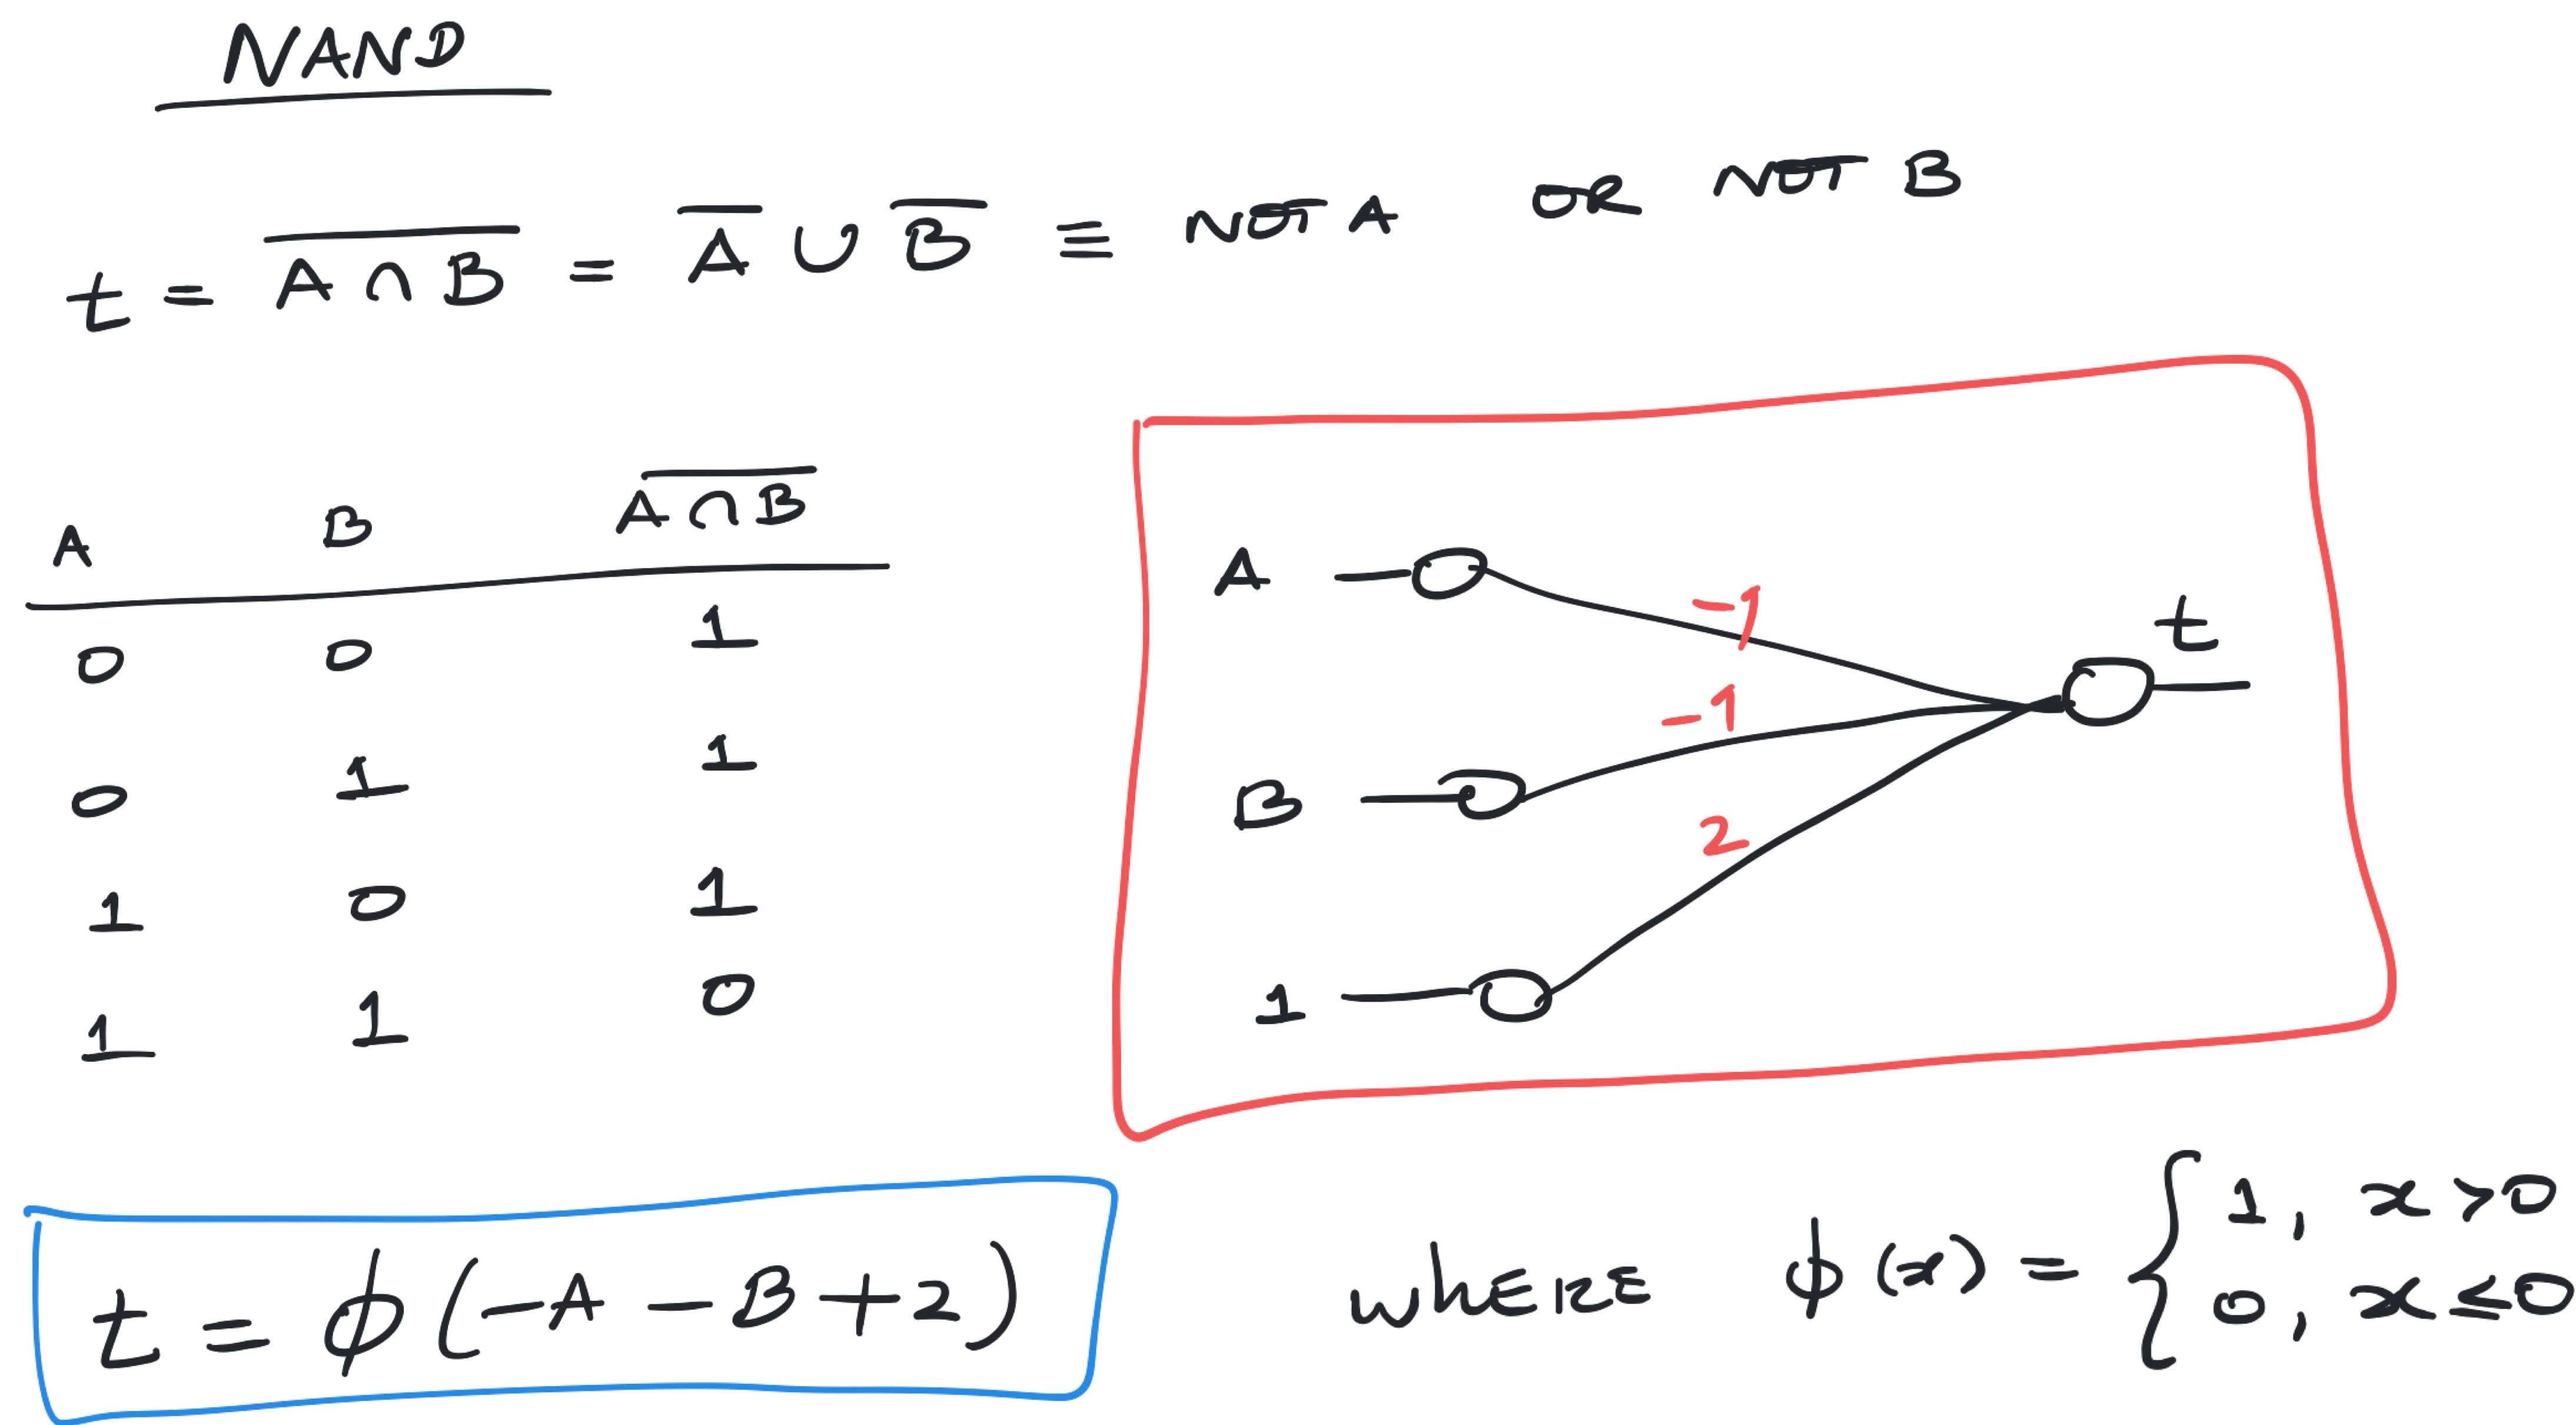 NAND
t = A̅ ̅∩̅ ̅B̅ = A̅ ∪ B̅ ≡ NOT A OR NOT B
A B A̅ ̅∩̅ ̅B̅
0 0 1
0 1 1
1 0 1
1 1 0
A -1 t
B -1
1 2
t = ϕ(-A - B + 2)
WHERE ϕ(x) = { 1, x > 0
0, x ≤ 0